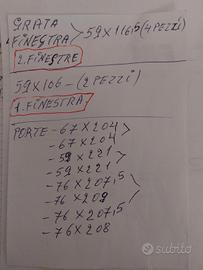 GRATA
FINESTRA > 59X116,5 (4 PEZZI)
2. FINESTRE
59X106 - (2 PEZZI)
1. FINESTRA
PORTE - 67 X 204
- 67 X 204
- 59 X 221
- 59 X 221
- 76 X 207,5
- 76 X 209
- 76 X 207,5
- 76 X 208
subito